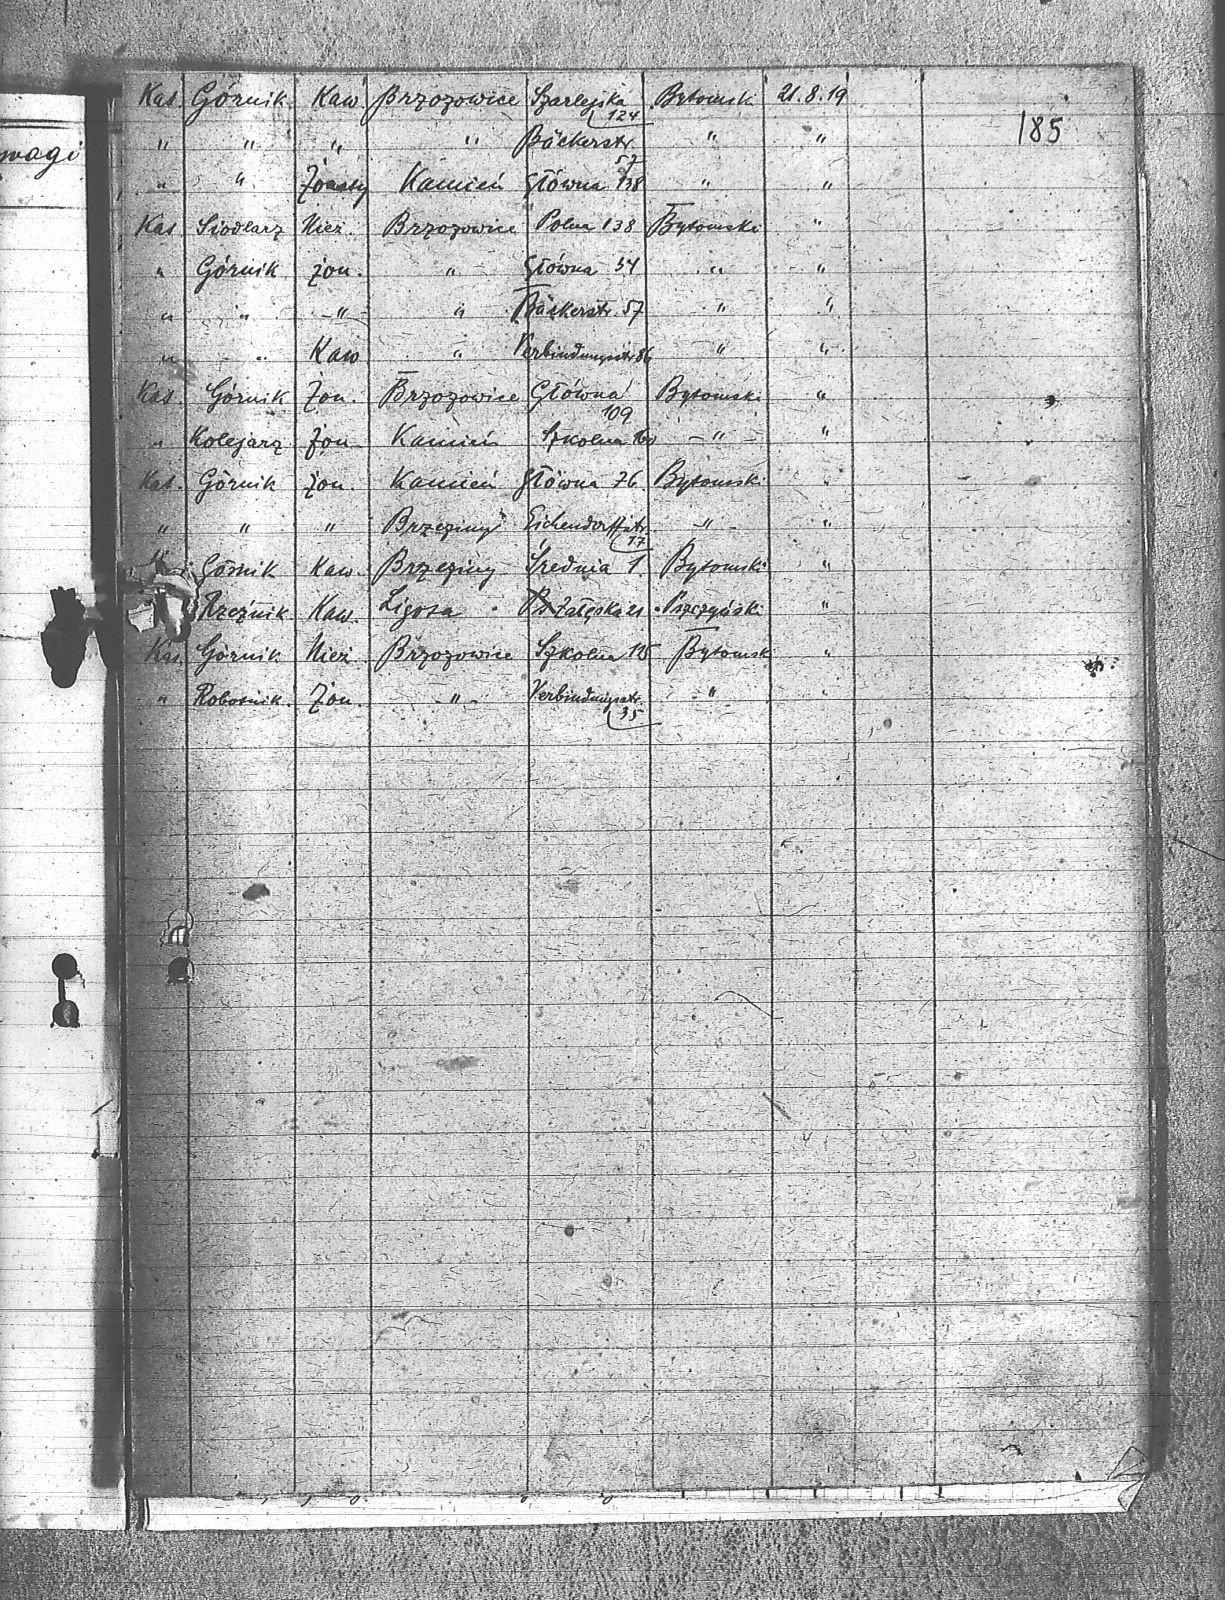 185
wagi
Kat. Górnik Kaw Brzozowice Szarlejska 124 Bytomsk 21.8.19
" " " " Bäckerstr. 57 " "
" " Żonaty Kamień Główna 138 " "
Kat Siodlarz Nież. Brzozowice Polna 138 Bytomski "
" Górnik żon. " Główna 54 " "
" " -"- " Bäckerstr. 57 " "
" " Kaw " Verbindungsstr 86 " "
Kat. Górnik Żon. Brzozowice Główna 109 Bytomski "
" Kolejarz Żon Kamień Szkolna -"- "
Kat. Górnik żon. Kamień Główna 76 Bytomski "
" " " Brzeziny Eichendorffstr. 17 -"- "
Górnik Kaw. Brzeziny Średnia 1. Bytomski "
Rzeźnik Kaw. Ligota Załęska 21 Pszczyński "
Kat. Górnik Nież Brzozowice Szkolna 115 Bytomsk "
" Robotnik. Żon. -"- Verbindungsstr. 35 " "